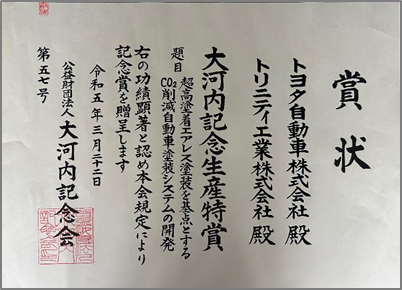 賞状
トヨタ自動車株式会社 殿
トリニティ工業株式会社 殿
大河内記念生産特賞
題目 超高塗着エアレス塗装を基点とする
CO₂削減自動車塗装システムの開発
右の功績顕著と認め本会規定により
記念賞を贈呈します
令和五年三月二十二日
公益財団法人 大河内記念会
第五七号